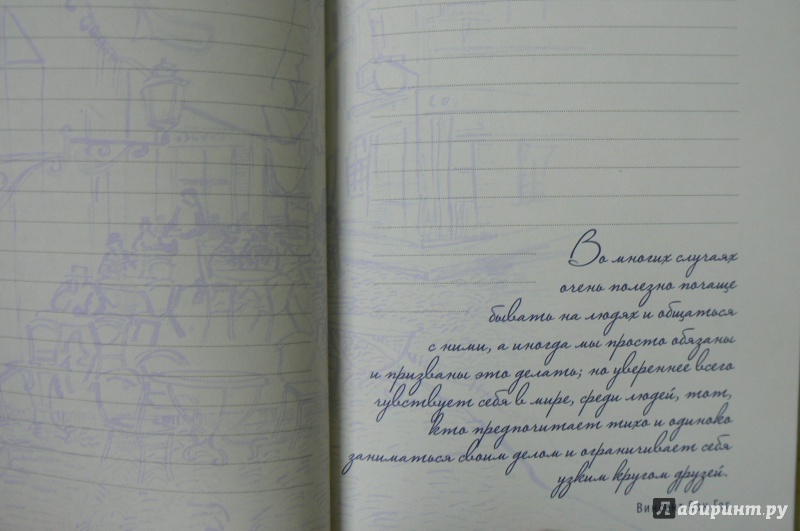 Во многих случаях
очень полезно почаще
бывать на людях и общаться
с ними, а иногда мы просто обязаны
и призваны это делать; но увереннее всего
чувствует себя в мире, среди людей, тот,
кто предпочитает тихо и одиноко
заниматься своим делом и ограничивает себя
узким кругом друзей.
Лабиринт.ру